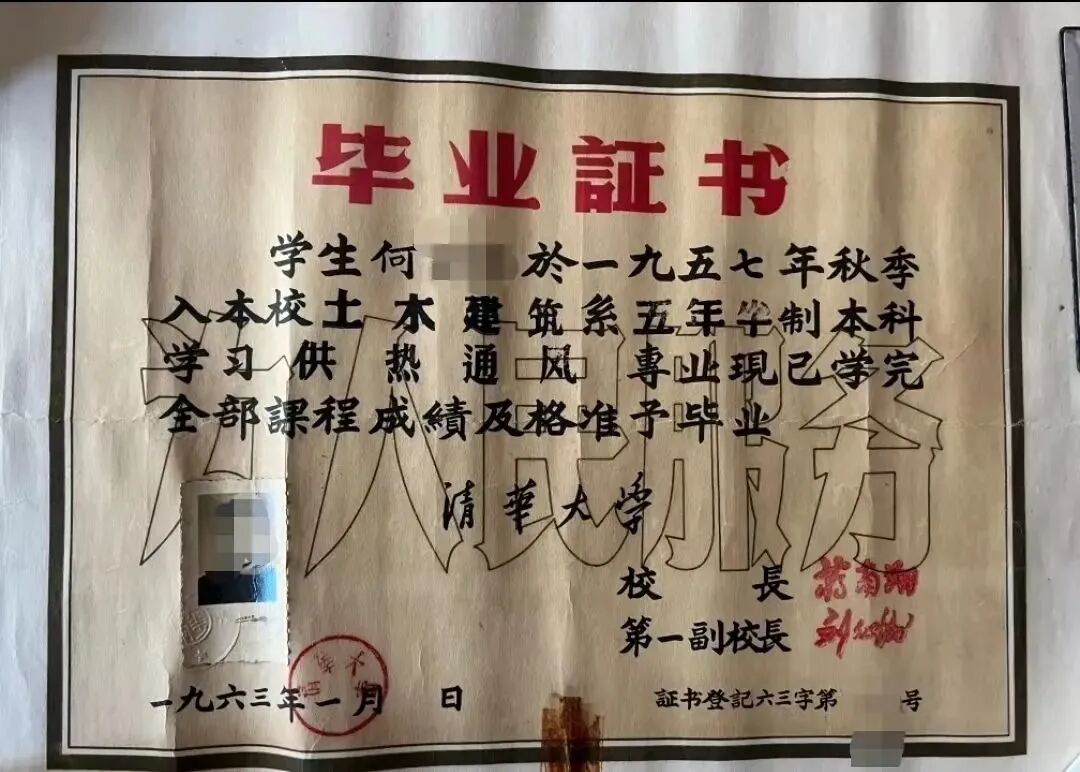 毕业証书
学生何 於一九五七年秋季
入本校土木建筑系五年半制本科
学习供热通风專业現已学完
全部課程成績及格准予毕业
为人民服务
清華大学
校 長 蒋南翔
第一副校長 刘仙洲
一九六三年一月 日
証书登記六三字第 号